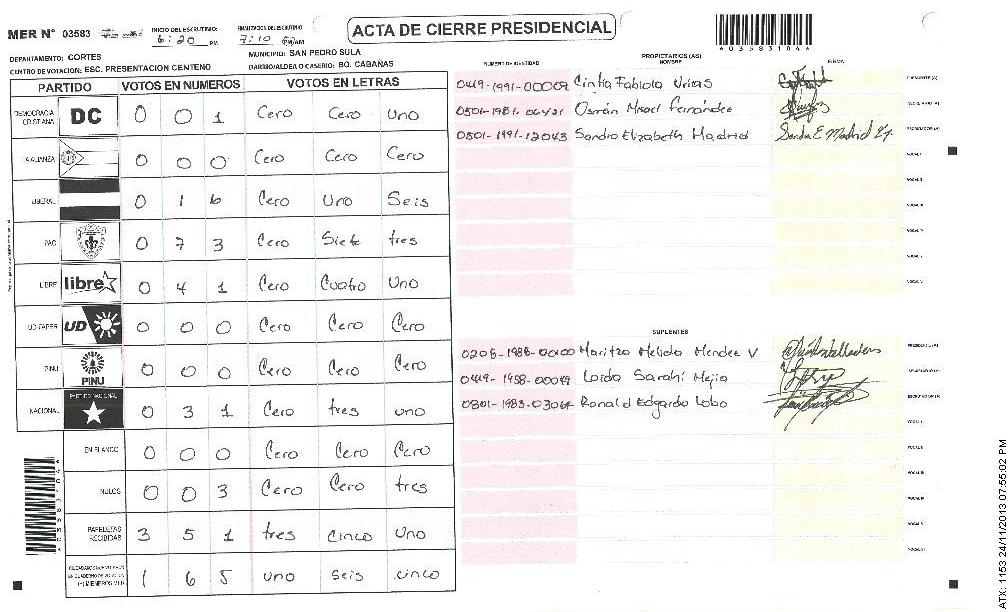 ACTA DE CIERRE PRESIDENCIAL
MER N° 03583
INICIO DEL ESCRUTINIO: 6:20 PM
FINALIZACION DEL ESCRUTINIO 7:10 PM/AM
DEPARTAMENTO: CORTES
MUNICIPIO: SAN PEDRO SULA
CENTRO DE VOTACION: ESC. PRESENTACION CENTENO
BARRIO/ALDEA O CASERIO: BO. CABAÑAS
PARTIDO VOTOS EN NUMEROS VOTOS EN LETRAS
DEMOCRACIA CRISTIANA DC 0 0 1 Cero Cero Uno
LA ALIANZA 0 0 0 Cero Cero Cero
LIBERAL 0 1 6 Cero Uno Seis
PAC 0 7 3 Cero Siete tres
LIBRE libre 0 4 1 Cero Cuatro Uno
UD-FAPER UD 0 0 0 Cero Cero Cero
PINU PINU 0 0 0 Cero Cero Cero
NACIONAL PARTIDO NACIONAL 0 3 1 Cero tres uno
EN BLANCO 0 0 0 Cero Cero Cero
NULOS 0 0 3 Cero Cero tres
PAPELETAS RECIBIDAS 3 5 1 tres cinco uno
1 6 5 uno seis cinco
NUMERO DE IDENTIDAD
PROPIETARIOS (AS)
NOMBRE
FIRMA
0449-1991-00009 Cintia Fabiola Urias PRESIDENTE (A)
0501-1981-06421 Osmán Misael Fernández SECRETARIO (A)
0801-1991-12043 Sandra Elizabeth Madrid Sandra E Madrid ESCRUTADOR (A)
VOCAL I
VOCAL II
VOCAL III
VOCAL IV
VOCAL V
VOCAL VI
SUPLENTES
Maritza Melida Mendez V PRESIDENTE (A)
0449-1958-00049 Loida Sarahi Mejia SECRETARIO (A)
0801-1983-03064 Ronald Edgardo Lobo ESCRUTADOR (A)
VOCAL I
VOCAL II
VOCAL III
VOCAL IV
VOCAL V
VOCAL VI
ATX: 1153 24/11/2013 07:55:02 PM